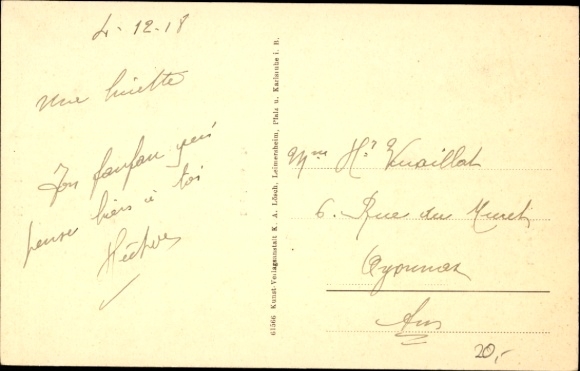 4-12-18
Ton fanfan qui
pense bien à toi
Hector
61566 Kunst-Verlagsanstalt K. A. Lösch, Leimersheim, Pfalz u. Karlsruhe i. B.
Mme Hr Vuaillat
6. Rue du Muret
Oyonnax
Ain
20,-